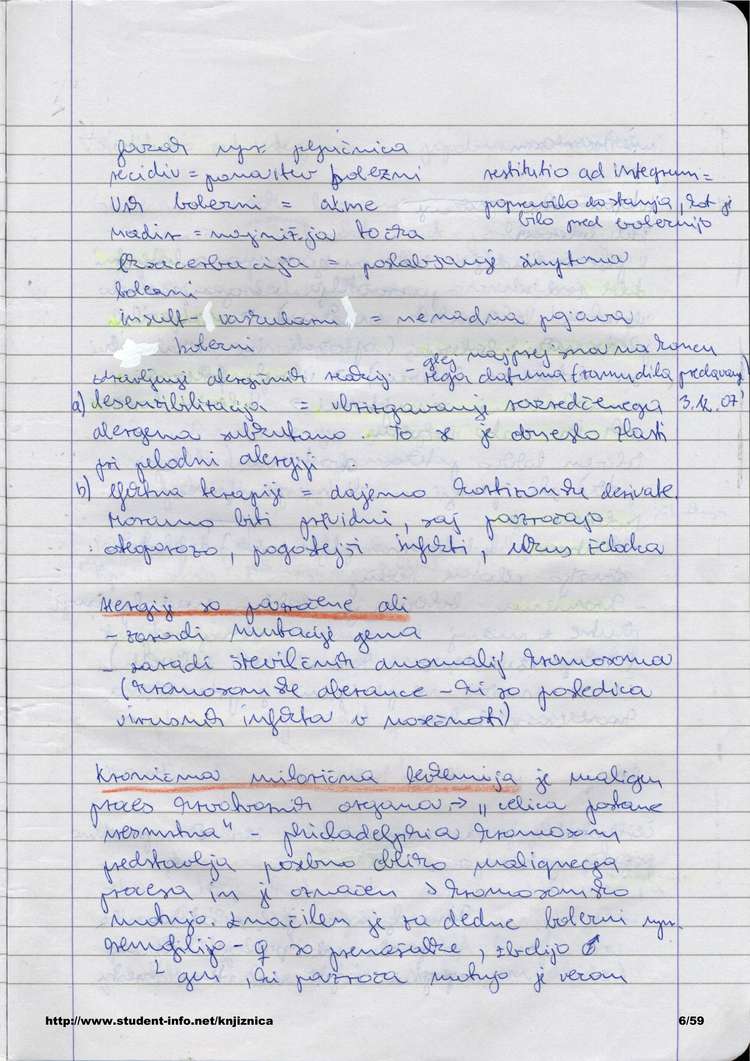 povzr. npr. pljučnica
recidiv = ponovitev bolezni
restitutio ad integrum =
vrh bolezni = akme
popravilo do stanja, kot je
bilo pred boleznijo
nadir = najnižja točka
Exacerbacija = poslabšanje simptoma
bolezni
insult - (vaskularni) = nenadna pojava
bolezni
zdravljenje alergičnih reakcij - glej najprej snov na koncu
tega datuma (zamudila predavanje)
3.12.07!
a) desenzibilizacija = vbrizgavanje razredčenega
alergena subkutano. To se je obneslo zlasti
pri pelodni alergiji.
b) efektna terapija = dajemo kortizonske derivate.
Moramo biti previdni, saj povzročajo
osteoporozo, pogostejši infekti, ulkus želodca
Alergije so povzročene ali
- zaradi mutacije gena
- zaradi številčnih anomalij kromosoma
(kromosomske aberance - ki so posledica
virusnih infekta v nosečnosti)
Kronična mieloična levkemija je maligen
proces krvotvornih organov → "celica postane
nesmrtna" - philadelphia kromosom
predstavlja posebno obliko malignega
procesa in je označen s kromosomsko
motnjo. Značilen je za dedne bolezni npr.
hemofilijo - ♀ so prenašalke, zbolijo ♂
└ gen, ki povzroča motnjo je vezan
http://www.student-info.net/knjiznica
6/59